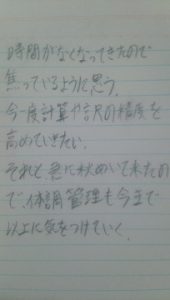 時間がなくなってきたので
焦っているように思う。
今一度計算や訳の精度を
高めていきたい。
それと急に秋めいて来たの
で、体調管理も今まで
以上に気をつけていく。